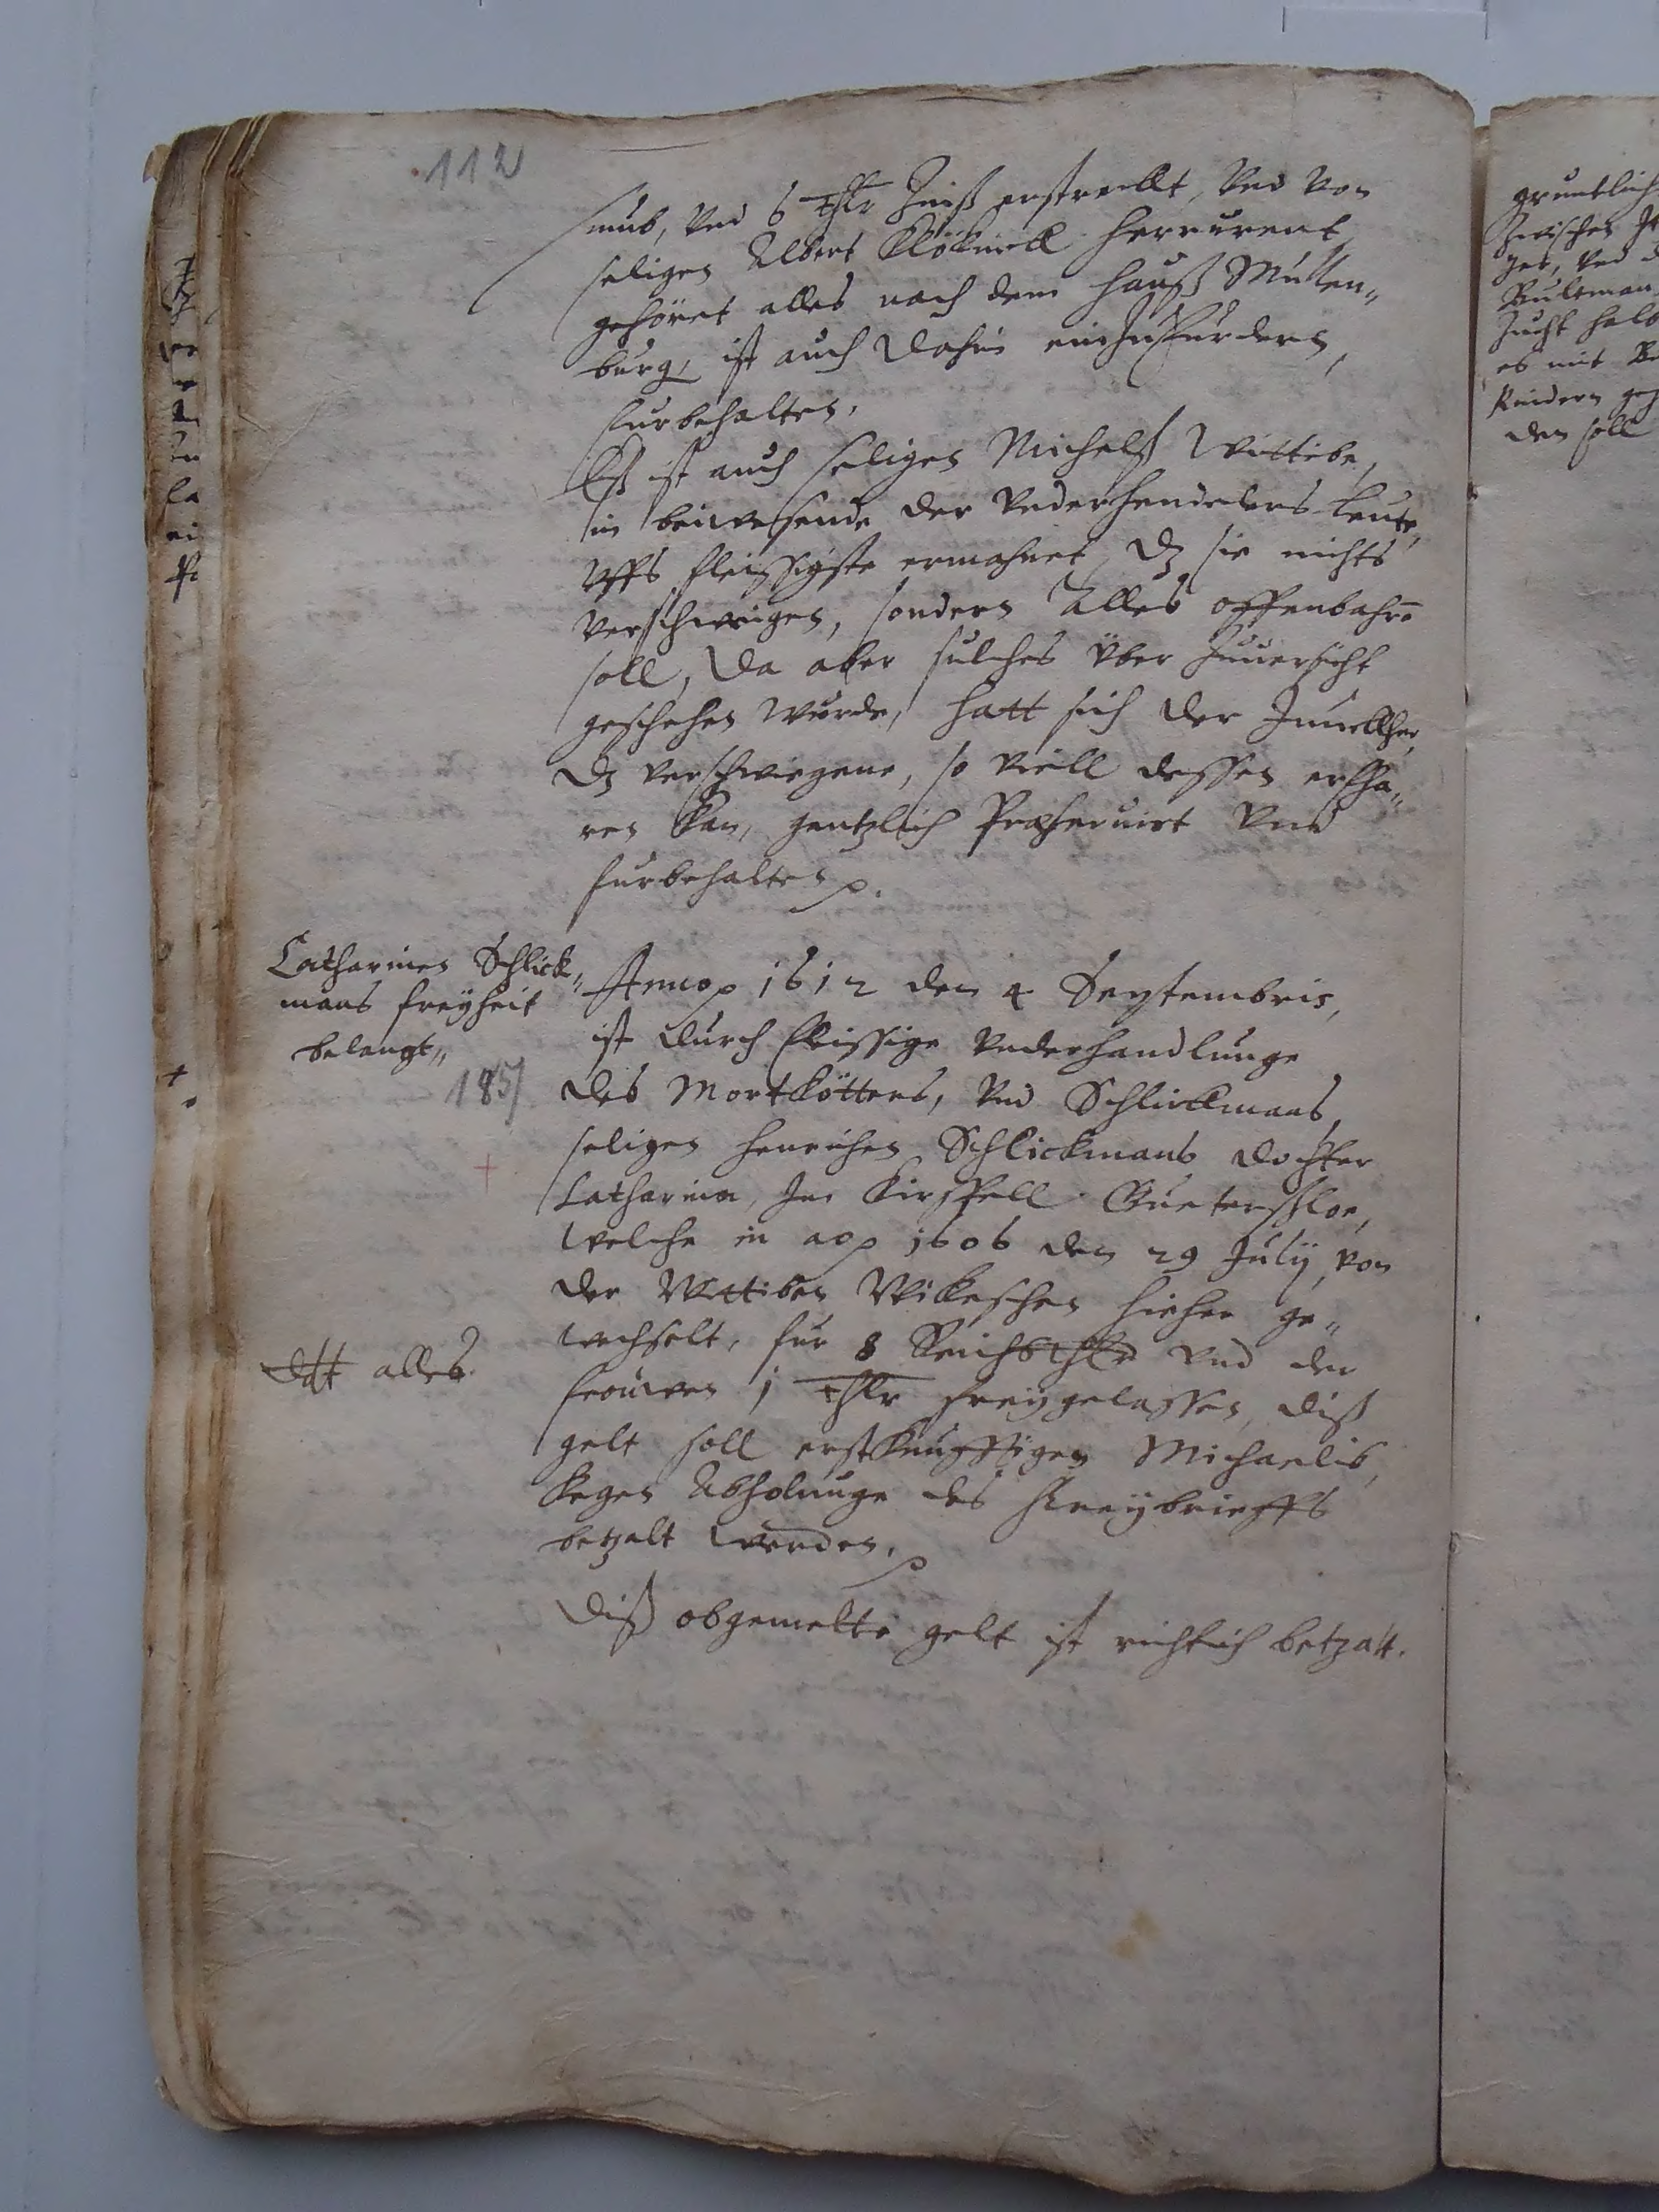 112
sumb, Vnd 6 thlr Zinß erstreckt, Vnd von
seligen Albert Klökinck herrurent
gehöret alles nach dem hauß Mullen„
burg, ist auch dahin einzufurdern,
furbehalten.
Eß ist auch seligen Michelß Wittibe,
in beiwesende der Vnderhendelers leute,
Vffs fleissigste ermahnet, dz sie nichts
verschweigen, sondern Alles offenbahrn
soll, Da aber sulches Vber Zuuersicht
geschehen wurde, hatt sich der Junckher,
dz verschwiegene, so viell dessen erfha„
ren kan, gentzlich Præseruirt Vnd
furbehalten p.
Catharinen Schlick„
mans freÿheit
belangt„
185
Anno p 1612 den 4 Septembris,
ist durch fleissige Vnderhandlunge
des Mortkötters, Vnd Schlickmans,
seligen henrichen Schlickmans dochter
Catharina, Im Kirspell Guetersloe,
welche in ao p 1606 den 29 Julÿ, von
der Wittiben Wikeschen hieher ge„
wechselt, fur 8 Reichsthlr vnd der
frouwen 1 thlr freÿgelassen, diß
gelt soll erstkunfftigen Michaelis,
kegen Abholunge des freÿbrieffs
betzalt werden. p
ddt alles.
Diß obgemelte gelt ist richtich betzalt.
gruntlich
Zwischen
Vnd
Bultman
Zucht halb
es mit
Kindern
den soll